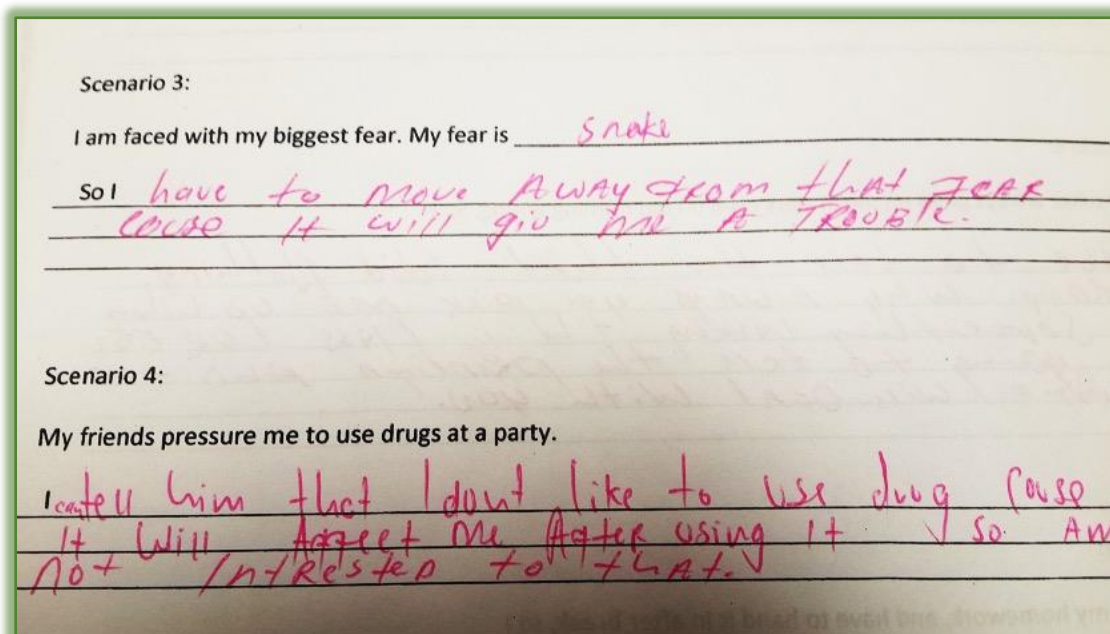 Scenario 3:
I am faced with my biggest fear. My fear is snake
So I have to move AWAY from that FEAR
couse It will giv me A TROUBLE.
Scenario 4:
My friends pressure me to use drugs at a party.
I can tell him that I dont like to use drug couse
It Will Affect Me After using It so. Am
not IntREsteD to that.